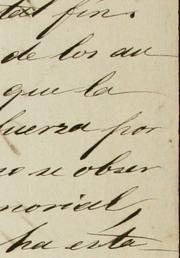 tal fin.
de los au
que la
fuerza por
no se obser
morial
ha esta